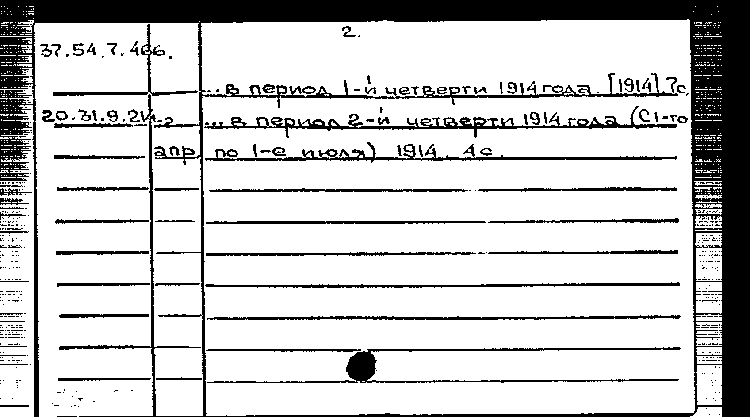 2.
37.54.7.466.
... в период 1-й четверти 1914 года. [1914] 7с.
20.31.9.214-2 ... в период 2-й четверти 1914 года (С 1-го
апр. по 1-е июля) 1914. 4с.